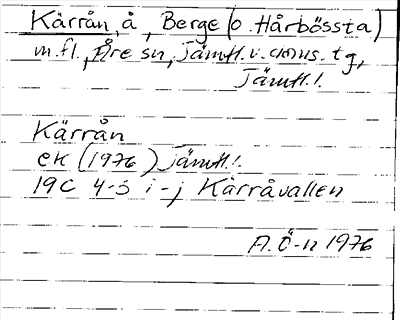 Kärrån, å, Berge (o. Hårbössta)
m.fl., Åre sn, Jämtl. v. doms. tg,
Jämtl.l.
Kärrån
ek (1976) Jämtl.l.
19C 4-5 i-j Kärråvallen
A.Ö-n 1976